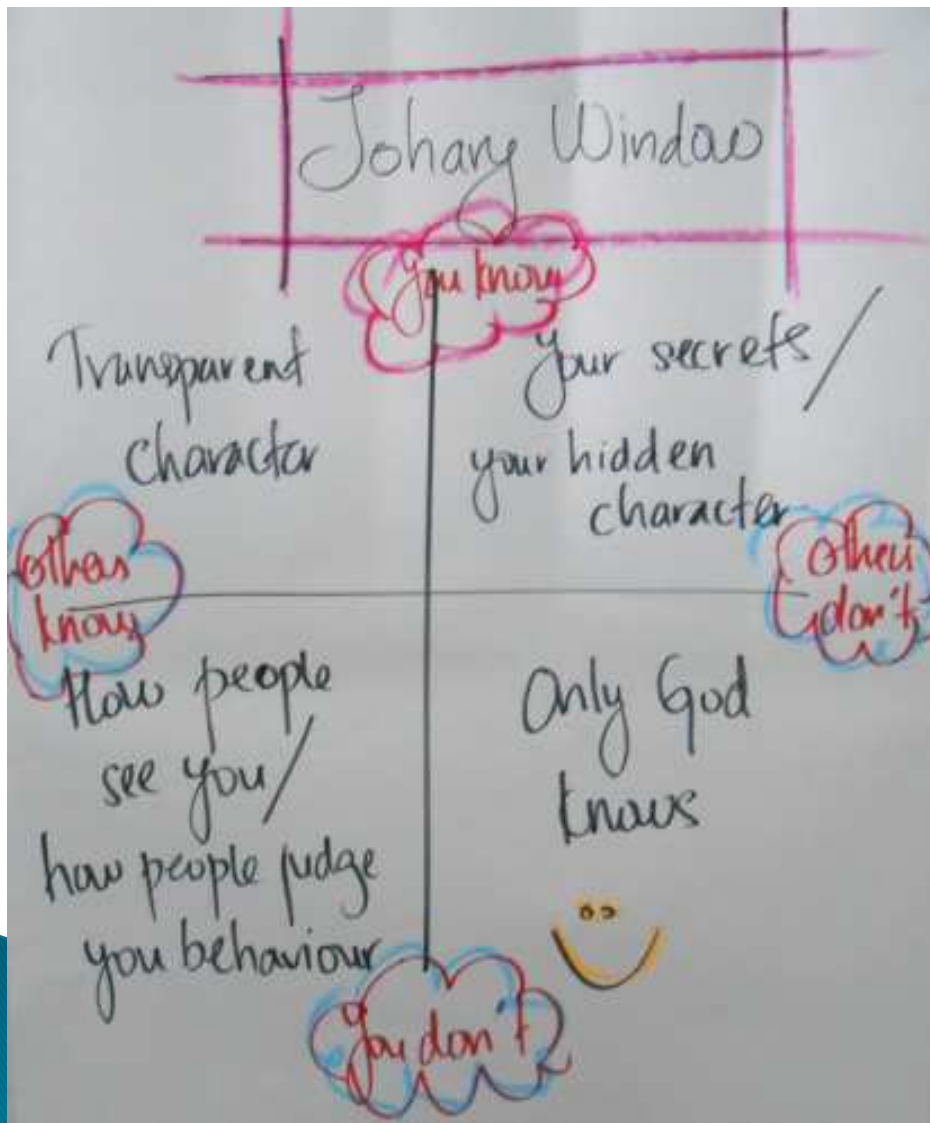 Johary Window
You know
Transparent
character
Your secrets/
your hidden
character
others
know
others
don't
How people
see you/
how people judge
you behaviour
Only God
knows
You don't